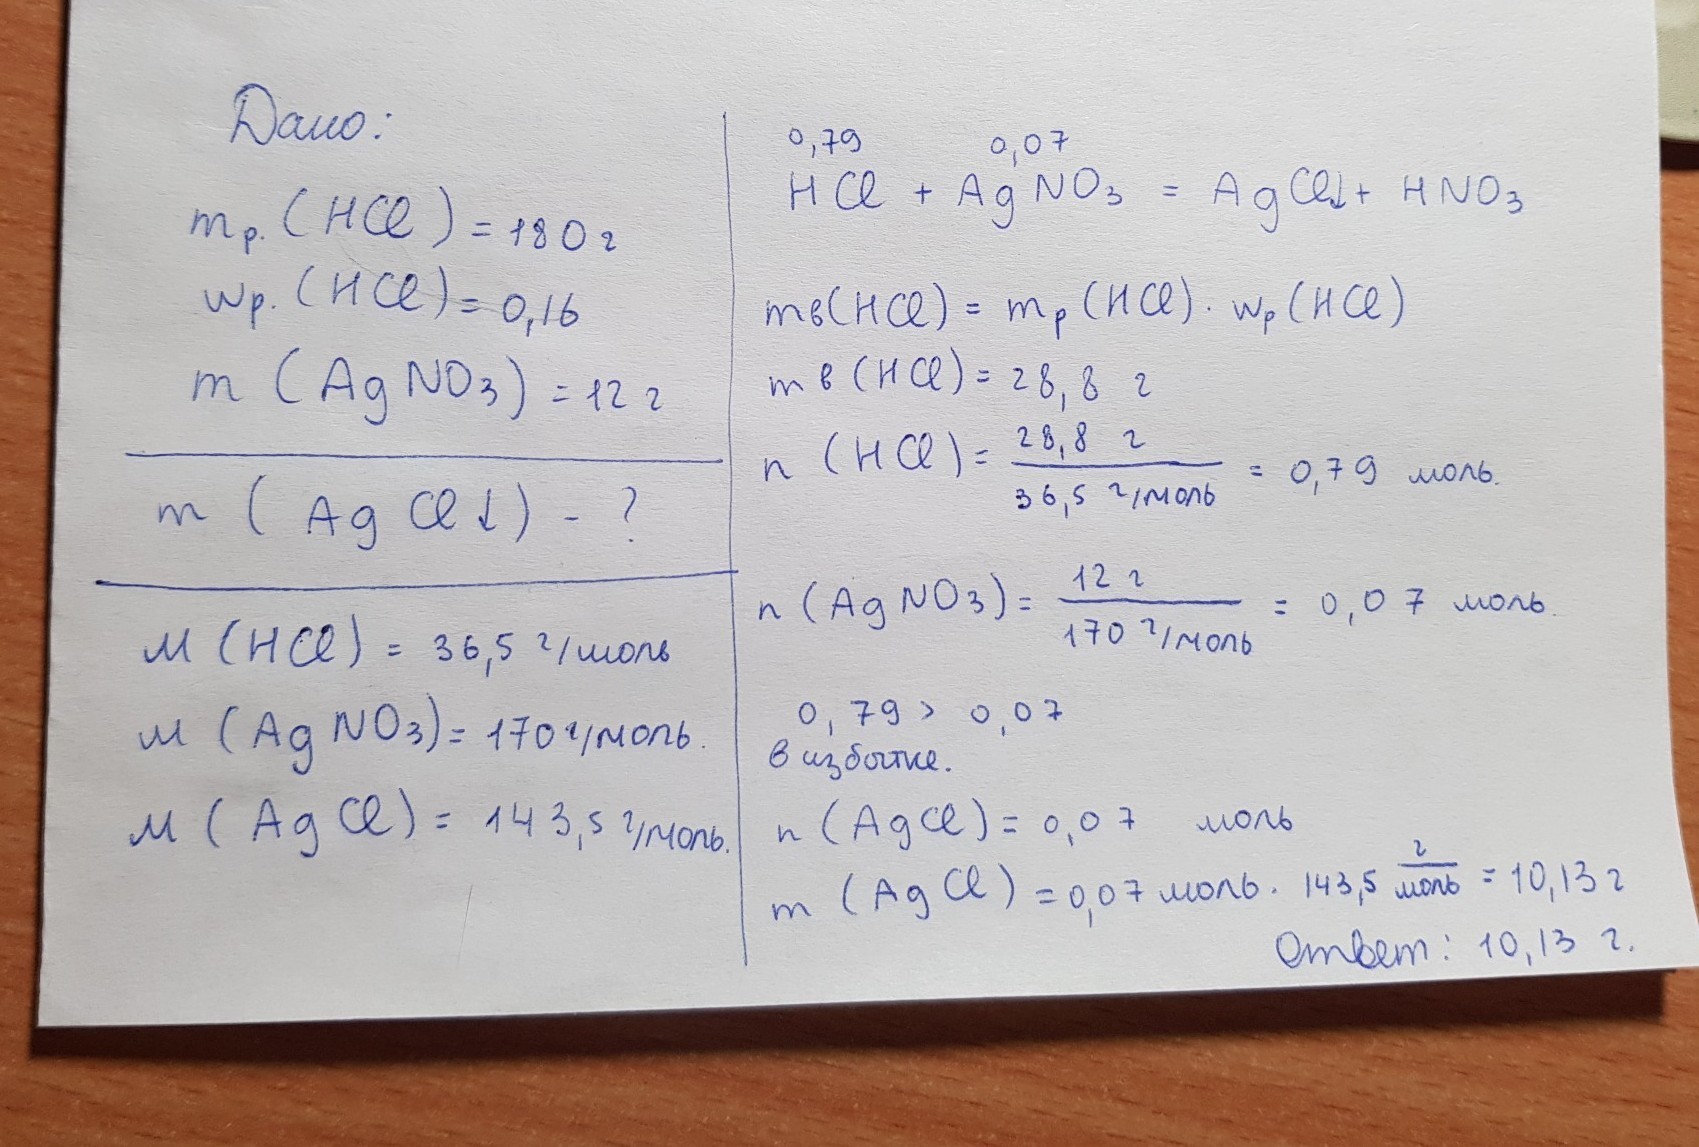 Дано:
mр. (HCl) = 180 г
wр. (HCl) = 0,16
m (AgNO3) = 12 г
m (AgCl↓) - ?
M (HCl) = 36,5 г/моль
M (AgNO3) = 170 г/моль.
M (AgCl) = 143,5 г/моль.
0,79 0,07
HCl + AgNO3 = AgCl↓ + HNO3
mв(HCl) = mр (HCl) · wр (HCl)
mв (HCl) = 28,8 г
n (HCl) = 28,8 г / 36,5 г/моль = 0,79 моль.
n (AgNO3) = 12 г / 170 г/моль = 0,07 моль.
0,79 > 0,07
в избытке.
n (AgCl) = 0,07 моль
m (AgCl) = 0,07 моль · 143,5 г/моль = 10,13 г
Ответ: 10,13 г.